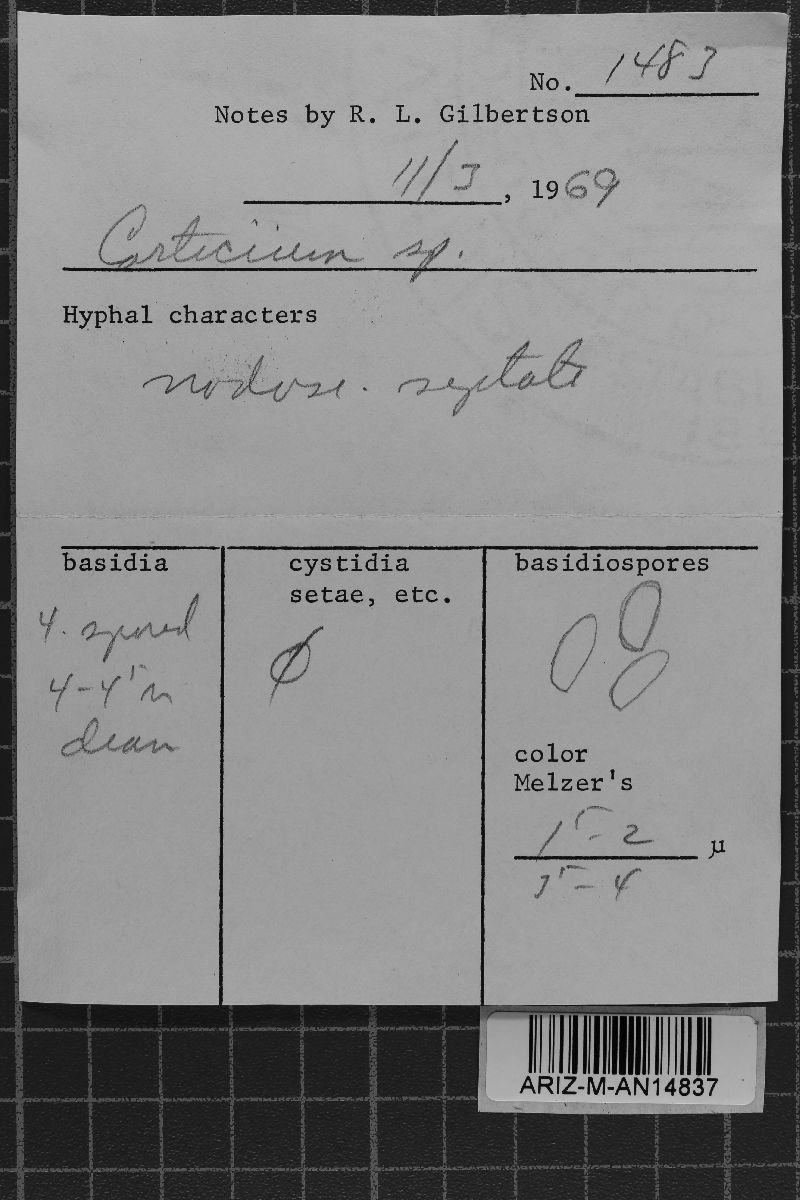 No. 1483
Notes by R. L. Gilbertson
11/3, 1969
Corticium sp.
Hyphal characters
nodose. septate
basidia
4. spored
4-4⁵ µ
diam
cystidia
setae, etc.
Ø
basidiospores
color
Melzer's
1⁵- 2 µ
3⁵- 4
ARIZ-M-AN14837